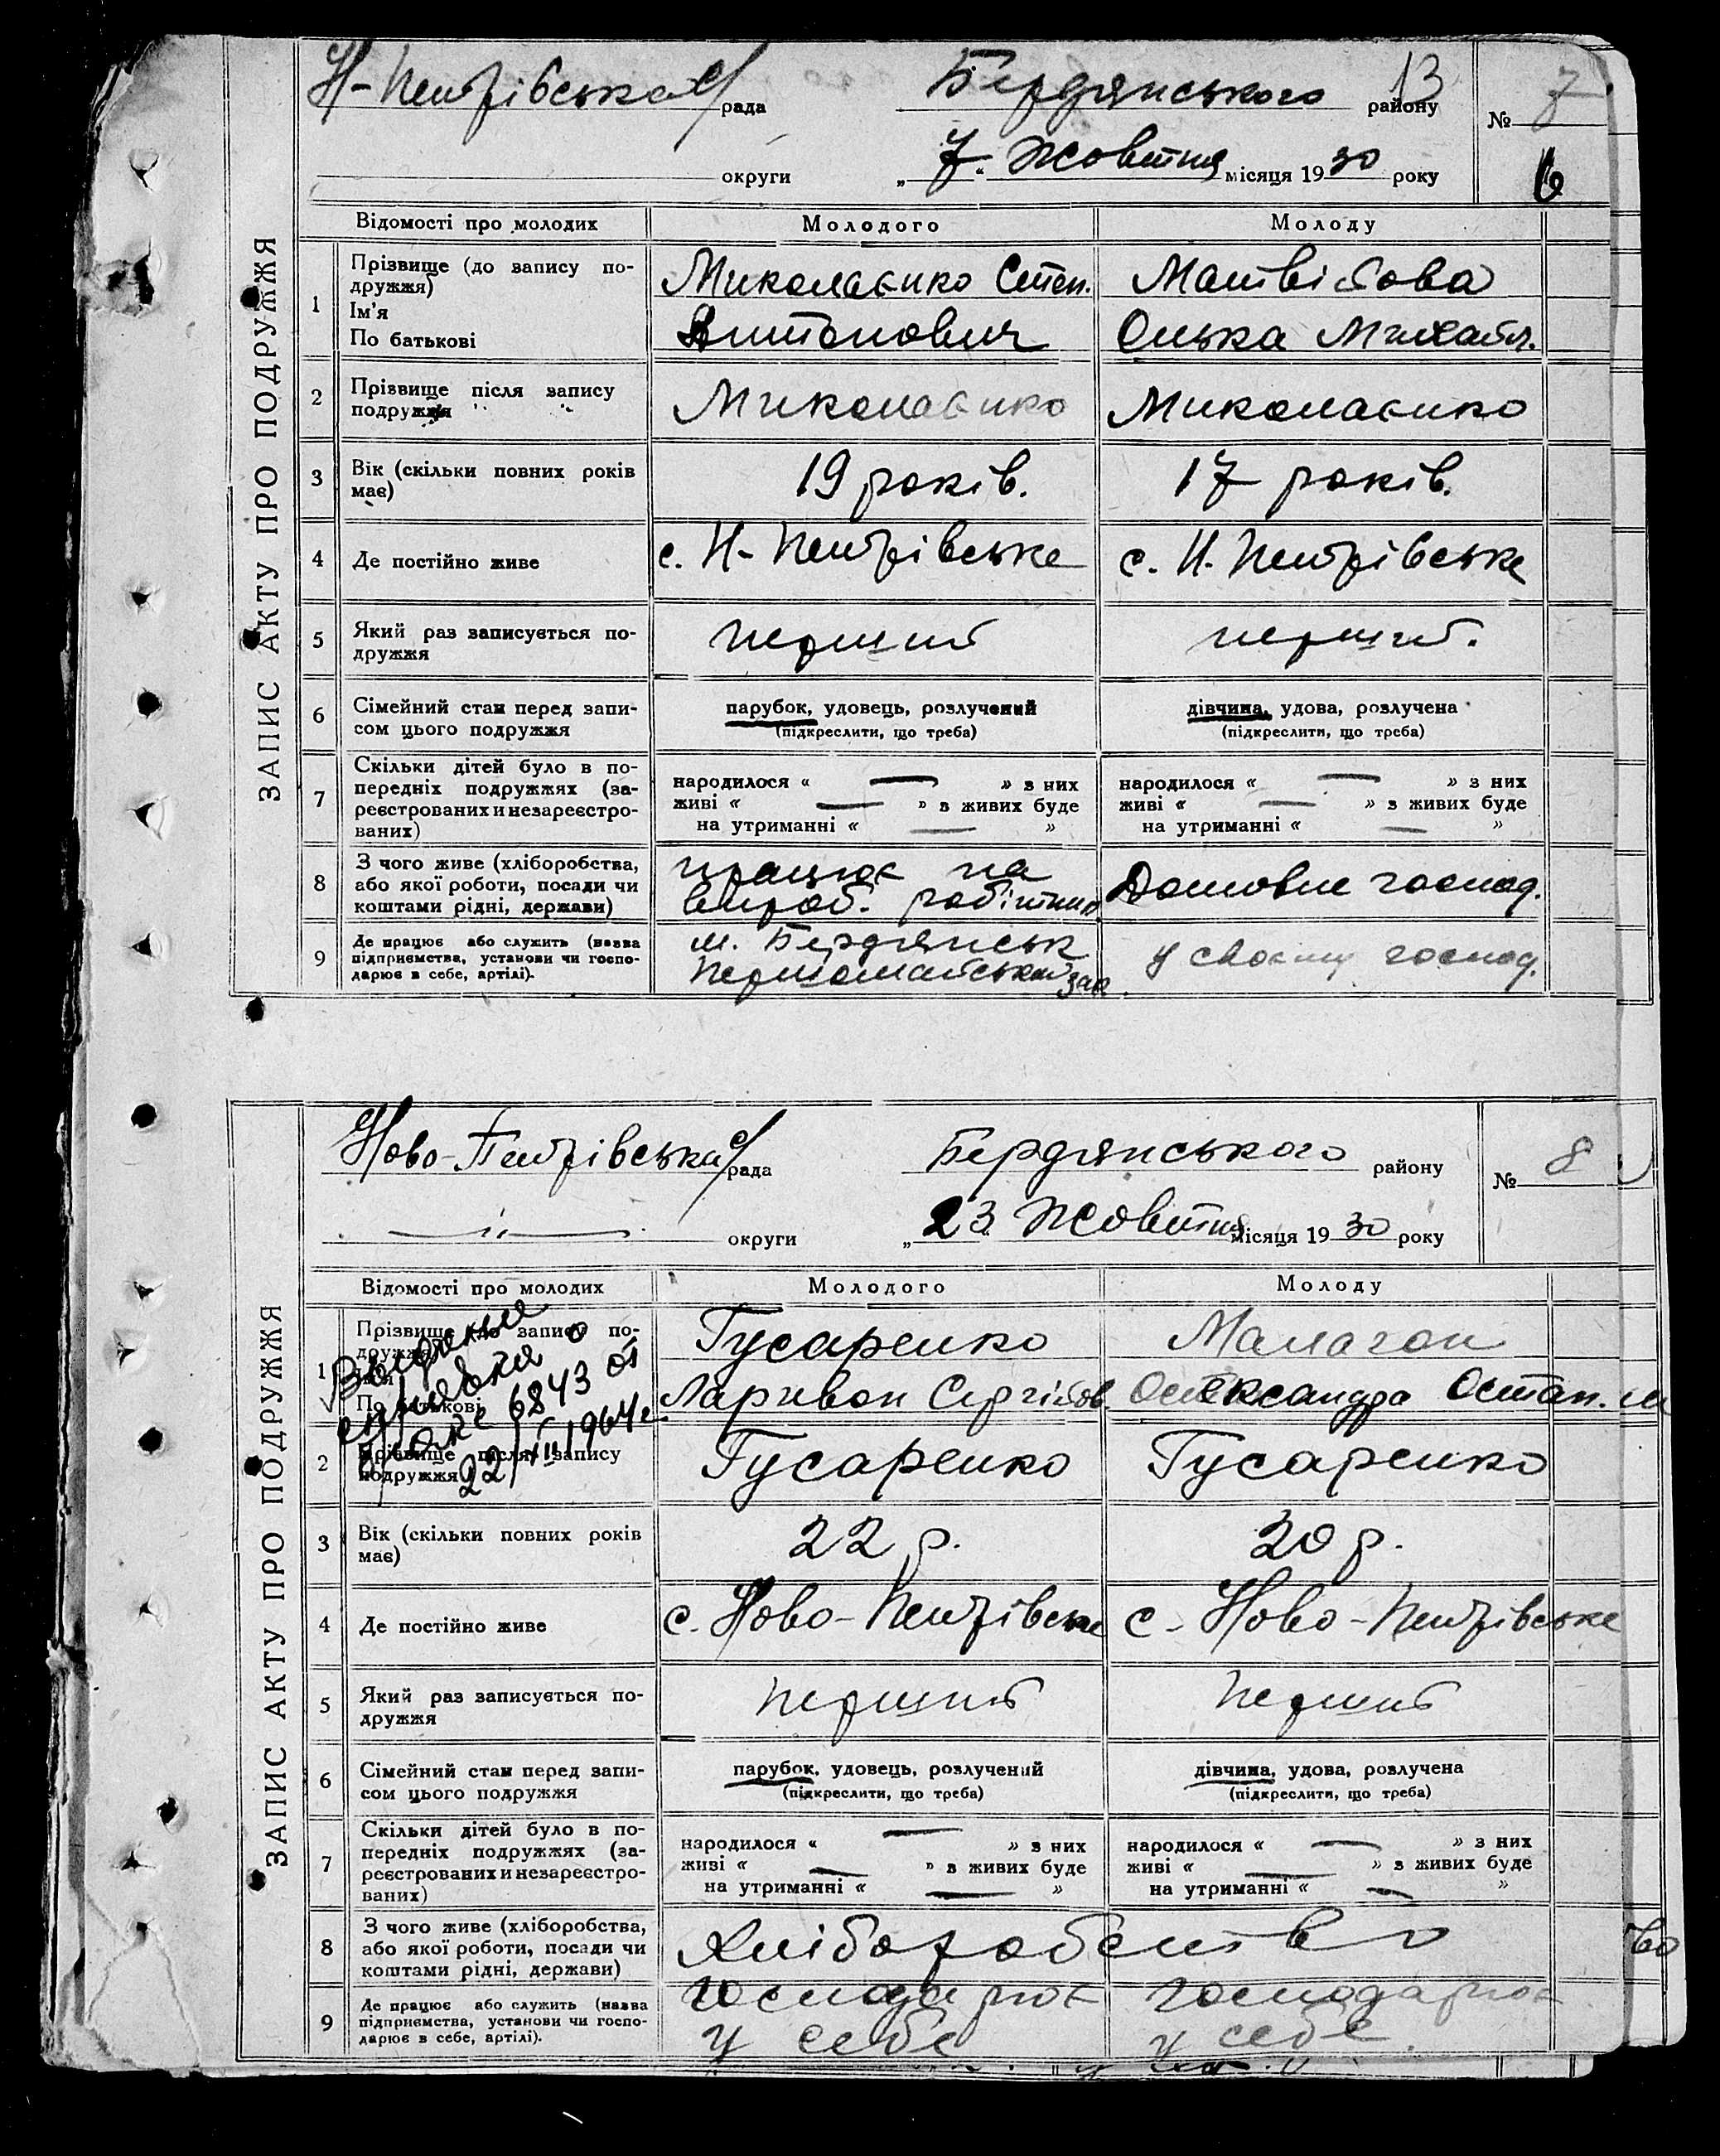 13
Н-Петрівська с/рада Бердянського району № 7
округи „7“ Жовтня місяця 1930 року 6
ЗАПИС АКТУ ПРО ПОДРУЖЖЯ
Відомості про молодих Молодого Молоду
1 Прізвище (до запису по-
дружжя)
Ім'я
По батькові
Миколаєнко Степ.
Антонович
Матвієова
Олька Михайл.
2 Прізвище після запису
подружжя
Миколаєнко Миколаєнко
3 Вік (скільки повних років
має)
19 років. 17 років.
4 Де постійно живе с. Н-Петрівське с. Н. Петрівське
5 Який раз записується по-
дружжя
перший перший.
6 Сімейний стан перед запи-
сом цього подружжя
парубок, удовець, розлучений
(підкреслити, що треба)
дівчина, удова, розлучена
(підкреслити, що треба)
7 Скільки дітей було в по-
передніх подружжях (за-
реєстрованих и незареєстро-
ваних)
народилося « — » з них
живі « — » з живих буде
на утриманні « — »
народилося « — » з них
живі « — » з живих буде
на утриманні « — »
8 З чого живе (хліборобства,
або якої роботи, посади чи
коштами рідні, держави)
працює на
вироб. робітник
Домовне господ.
9 Де працює або служить (назва
підприємства, установи чи госпо-
дарює в себе, артілі).
м. Бердянськ
Першомайський зав.
у своєму господ.
Ново-Петрівська с/рада Бердянського району № 8
—"— округи „23 Жовтня місяця 1930 року
ЗАПИС АКТУ ПРО ПОДРУЖЖЯ
Відомості про молодих Молодого Молоду
1 Прізвище (до запису по-
дружжя)
Ім'я
По батькові
Выдана
справка о
браке 6843 от
22/XII 1964г.
Гусаренко
Ларивон Сергійов.
Малагон
Олександра Остап.
2 Прізвище після запису
подружжя
Гусаренко Гусаренко
3 Вік (скільки повних років
має)
22 р. 20 р.
4 Де постійно живе с. Ново-Петрівське с. Ново-Петрівське
5 Який раз записується по-
дружжя
перший перший
6 Сімейний стан перед запи-
сом цього подружжя
парубок, удовець, розлучений
(підкреслити, що треба)
дівчина, удова, розлучена
(підкреслити, що треба)
7 Скільки дітей було в по-
передніх подружжях (за-
реєстрованих и незареєстро-
ваних)
народилося « — » з них
живі « — » з живих буде
на утриманні « — »
народилося « — » з них
живі « — » з живих буде
на утриманні « — »
8 З чого живе (хліборобства,
або якої роботи, посади чи
коштами рідні, держави)
Хліборобство
во
9 Де працює або служить (назва
підприємства, установи чи госпо-
дарює в себе, артілі).
господарює
у себе
господарює
у себе